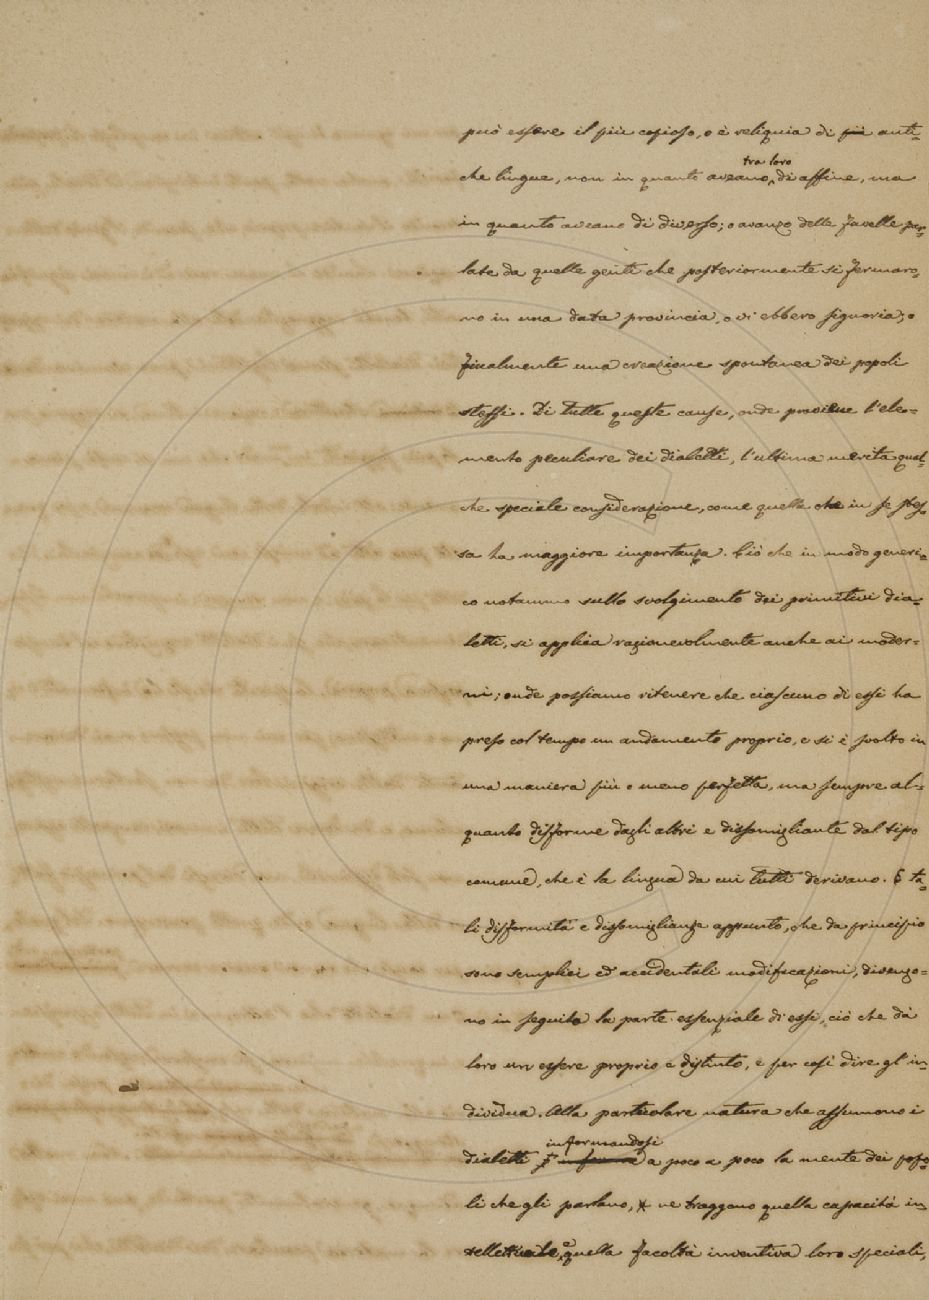 può essere il più copioso, o è reliquia di più anti=
che lingue, non in quanto aveano tra loro di affine, ma
in quanto aveano di diverso; o avanzo delle favelle par=
late da quelle genti che posteriormente si fermaro=
no in una data provincia, o vi ebbero signoria; o
finalmente una creazione spontanea dei popoli
stessi. Di tutte queste cause, onde proviene l'ele=
mento peculiare dei dialetti, l'ultima merita qual=
che speciale considerazione, come quella che in se stes=
sa ha maggiore importanza. Ciò che in modo generi=
co notammo sullo svolgimento dei primitivi dia=
letti, si applica ragionevolmente anche ai moder=
ni; onde possiamo ritenere che ciascuno di essi ha
preso col tempo un andamento proprio, e si è svolto in
una maniera più o meno perfetta, ma sempre al=
quanto difforme dagli altri e dissomigliante dal tipo
comune, che è la lingua da cui tutti derivano. E ta=
li difformità e dissomiglianze appunto, che da principio
sono semplici ed accidentali modificazioni, divengo=
no in seguito la parte essenziale di essi, ciò che dà
loro un essere proprio e distinto, e per così dire gl'in=
dividua. Alla particolare natura che assumono i
dialetti informandosi a poco a poco la mente dei popo=
li che gli parlano, ne traggono quella capacità in=
tellettuale, e quella facoltà inventiva loro speciali,